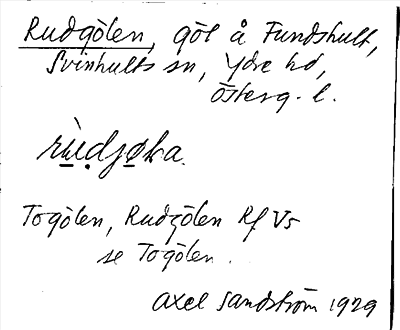 Rudgölen, göl å Fundshult,
Svinhults sn, Ydre hd,
Österg. l.
rù̱ḍjø̱ka.
Togölen, Rudgölen Rf Vs
se Togölen.
Axel Sandström 1929